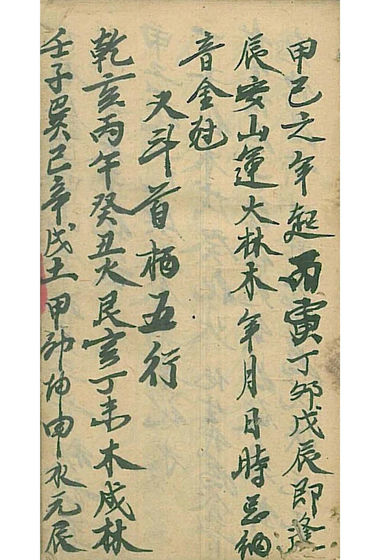 甲己之年起丙寅丁卯戊辰即逢
辰安山運大林木年月日時忌納
音金尅
又斗首五行
乾亥丙午癸丑火艮亥丁未木成林
壬子巽巳辛戌土甲卯坤申水元辰